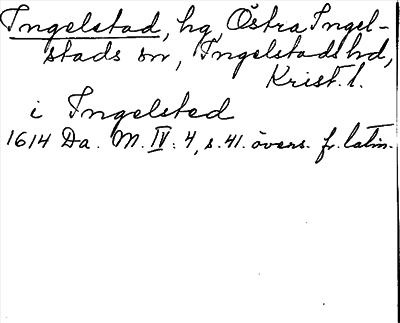 Ingelstad, hg, Östra Ingel-
stads sn, Ingelstads hd,
Krist. l.
i Ingelsted
1614 Da. M. IV. 4, s. 41. övers. fr. latin.